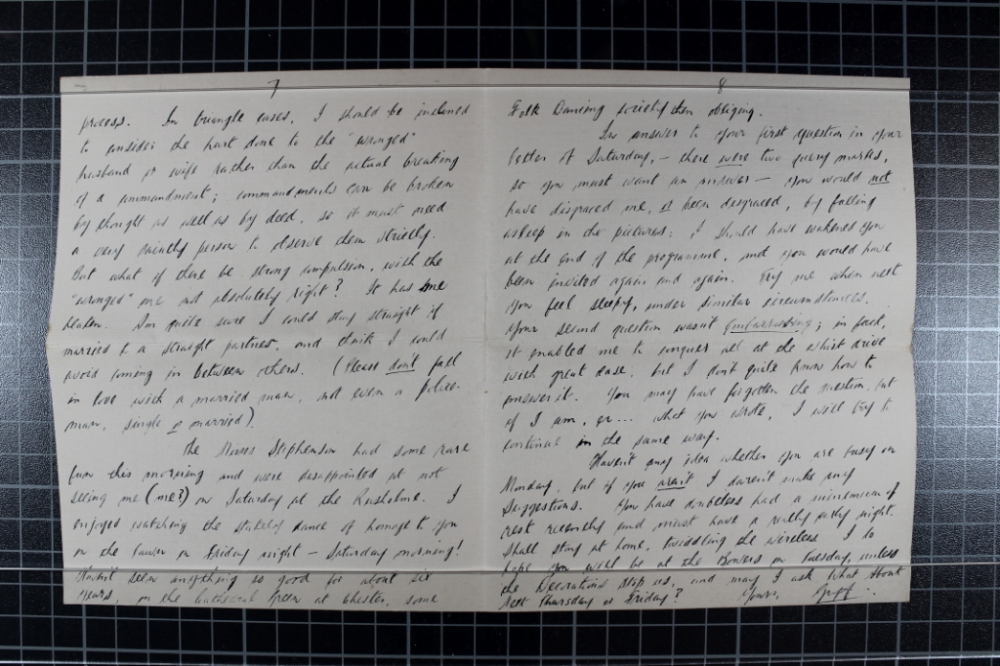 7
process. In triangle cases, I should be inclined
to consider the hurt done to the "wronged"
husband or wife rather than the actual breaking
of a commandment; commandments can be broken
by thought as well as by deed, so it must need
a very saintly person to observe them strictly.
But what if there be strong compulsion, with the
"wronged" one not absolutely right? It has me
beaten. I'm quite sure I could stay straight if
married to a straight partner, and think I could
avoid coming in between others. (Please don't fall
in love with a married man, not even a police-
man, single or married).
The Misses Stephenson had some rare
fun this morning and were disappointed at not
seeing me (me?) on Saturday at the Rusholme. I
enjoyed watching the stately dance of homage to you
on the Friday night – Saturday morning!
Haven't seen anything so good for about six
years, on the Cathedral Green at Chester, some
8
Folk Dancing society then obliging.
In answer to your first question in your
letter of Saturday, – there were two query marks,
so you must want an answer – you would not
have disgraced me, or been disgraced, by falling
asleep in the pictures; I should have wakened you
at the end of the programme, and you would have
been invited again and again. Try me when next
you feel sleepy, under similar circumstances.
Your second question wasn't embarrassing; in fact,
it enabled me to conquer all at the whist drive
with great ease, but I don't quite know how to
answer it. You may have forgotten the question, but
if I am, er... what you wrote, I will try to
continue in the same way.
Haven't any idea whether you are busy on
Monday, but if you aren't I daren't make any
suggestions. You have doubtless had a minimum of
rest recently and must have a really early night.
Shall stay at home, twiddling the wireless I do
hope you will be at the Bowers on Tuesday, unless
the Decorations stop us, and may I ask what about
next Thursday or Friday? Yours,